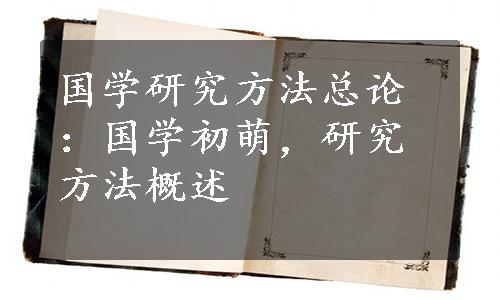 国学研究方法总论
：国学初萌，研究
方法概述